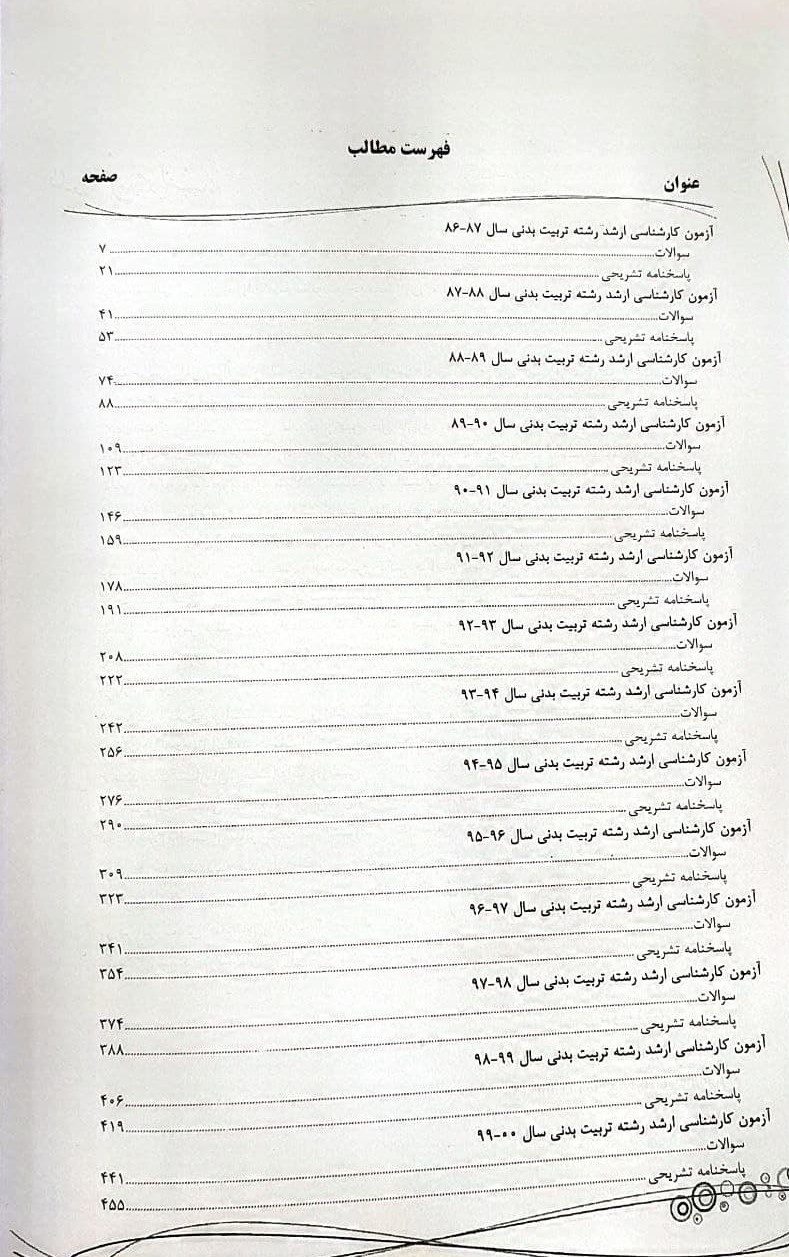 فهرست مطالب
عنوان صفحه
آزمون کارشناسی ارشد رشته تربیت بدنی سال ۸۷-۸۶
سوالات ۷
پاسخنامه تشریحی ۲۱
آزمون کارشناسی ارشد رشته تربیت بدنی سال ۸۸-۸۷
سوالات ۴۱
پاسخنامه تشریحی ۵۳
آزمون کارشناسی ارشد رشته تربیت بدنی سال ۸۹-۸۸
سوالات ۷۴
پاسخنامه تشریحی ۸۸
آزمون کارشناسی ارشد رشته تربیت بدنی سال ۹۰-۸۹
سوالات ۱۰۹
پاسخنامه تشریحی ۱۲۳
آزمون کارشناسی ارشد رشته تربیت بدنی سال ۹۱-۹۰
سوالات ۱۴۶
پاسخنامه تشریحی ۱۵۹
آزمون کارشناسی ارشد رشته تربیت بدنی سال ۹۲-۹۱
سوالات ۱۷۸
پاسخنامه تشریحی ۱۹۱
آزمون کارشناسی ارشد رشته تربیت بدنی سال ۹۳-۹۲
سوالات ۲۰۸
پاسخنامه تشریحی ۲۲۲
آزمون کارشناسی ارشد رشته تربیت بدنی سال ۹۴-۹۳
سوالات ۲۴۲
پاسخنامه تشریحی ۲۵۶
آزمون کارشناسی ارشد رشته تربیت بدنی سال ۹۵-۹۴
سوالات ۲۷۶
پاسخنامه تشریحی ۲۹۰
آزمون کارشناسی ارشد رشته تربیت بدنی سال ۹۶-۹۵
سوالات ۳۰۹
پاسخنامه تشریحی ۳۲۳
آزمون کارشناسی ارشد رشته تربیت بدنی سال ۹۷-۹۶
سوالات ۳۴۱
پاسخنامه تشریحی ۳۵۴
آزمون کارشناسی ارشد رشته تربیت بدنی سال ۹۸-۹۷
سوالات ۳۷۴
پاسخنامه تشریحی ۳۸۸
آزمون کارشناسی ارشد رشته تربیت بدنی سال ۹۹-۹۸
سوالات ۴۰۶
پاسخنامه تشریحی ۴۱۹
آزمون کارشناسی ارشد رشته تربیت بدنی سال ۰۰-۹۹
سوالات ۴۴۱
پاسخنامه تشریحی ۴۵۵